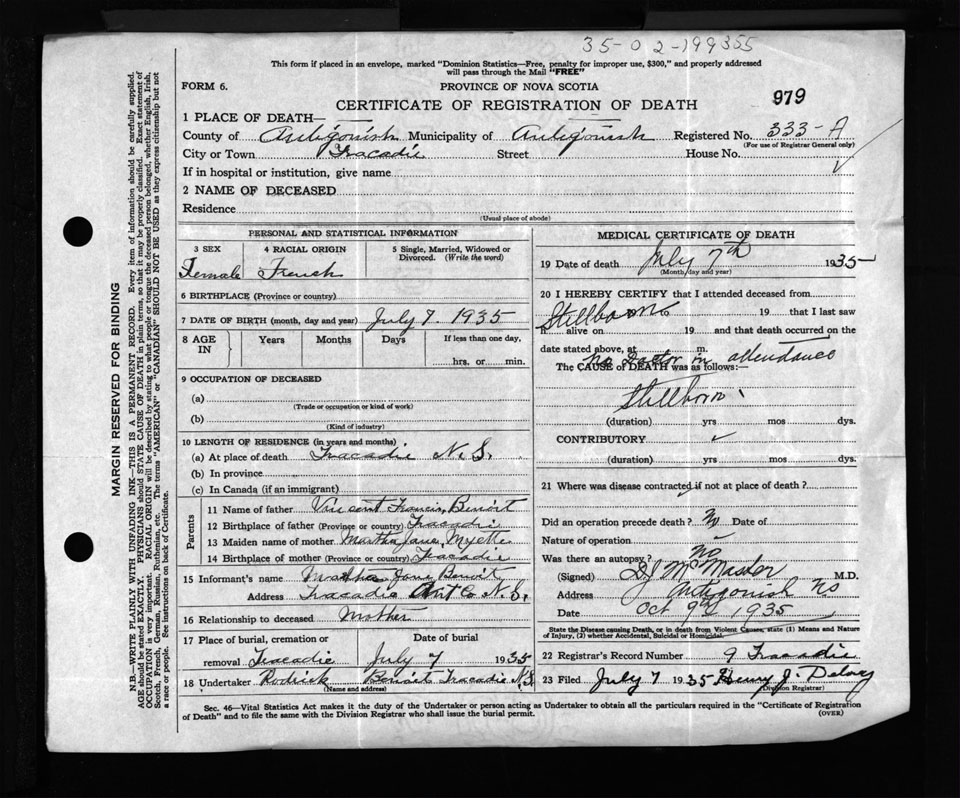 35-02-199355
This form if placed in an envelope, marked "Dominion Statistics—Free, penalty for improper use, $300," and properly addressed
will pass through the Mail "FREE"
FORM 6.
PROVINCE OF NOVA SCOTIA
CERTIFICATE OF REGISTRATION OF DEATH
979
1 PLACE OF DEATH—
County of Antigonish Municipality of Antigonish Registered No. 333-A
(For use of Registrar General only)
City or Town Tracadie Street House No.
If in hospital or institution, give name
2 NAME OF DECEASED
Residence
(Usual place of abode)
PERSONAL AND STATISTICAL INFORMATION
3 SEX 4 RACIAL ORIGIN 5 Single, Married, Widowed or
Divorced. (Write the word)
Female French
6 BIRTHPLACE (Province or country)
7 DATE OF BIRTH (month, day and year) July 7. 1935
8 AGE IN Years Months Days If less than one day,
hrs. or min.
9 OCCUPATION OF DECEASED
(a)
(Trade or occupation or kind of work)
(b)
(Kind of industry)
10 LENGTH OF RESIDENCE (in years and months)
(a) At place of death Tracadie N.S.
(b) In province
(c) In Canada (if an immigrant)
Parents
11 Name of father Vincent Francis Benoit
12 Birthplace of father (Province or country) Tracadie
13 Maiden name of mother Martha Jane Myette
14 Birthplace of mother (Province or country) Tracadie
15 Informant's name Martha Jane Benoit
Address Tracadie Ant Co N.S.
16 Relationship to deceased Mother
17 Place of burial, cremation or Date of burial
removal Tracadie July 7 1935
18 Undertaker Rodrick Benoit Tracadie N.S
(Name and address)
MEDICAL CERTIFICATE OF DEATH
19 Date of death July 7th 1935
(Month, day and year)
20 I HEREBY CERTIFY that I attended deceased from
Stillborn 19 that I last saw
alive on 19 and that death occurred on the
date stated above, at m.
no doctor in attendance
The CAUSE of DEATH was as follows:—
Stillborn
(duration) yrs mos dys.
CONTRIBUTORY
(duration) yrs. mos. dys.
21 Where was disease contracted if not at place of death?
Did an operation precede death? No Date of
Nature of operation
Was there an autopsy? no
(Signed) DJ McMaster M.D.
Address Antigonish NS
Date Oct 9th 1935
State the Disease causing Death, or in death from Violent Causes, state (1) Means and Nature
of Injury, (2) whether Accidental, Suicidal or Homicidal.
22 Registrar's Record Number 9 Tracadie
23 Filed July 7 1935 Henry J. Delorey
(Division Registrar)
Sec. 46—Vital Statistics Act makes it the duty of the Undertaker or person acting as Undertaker to obtain all the particulars required in the "Certificate of Registration
of Death" and to file the same with the Division Registrar who shall issue the burial permit.
(OVER)
MARGIN RESERVED FOR BINDING
N.B.—WRITE PLAINLY WITH UNFADING INK—THIS IS A PERMANENT RECORD. Every item of information should be carefully supplied.
AGE should be stated EXACTLY. PHYSICIANS should STATE CAUSE OF DEATH in plain terms, so that it may be properly classified. Exact statement of
OCCUPATION is very important. RACIAL ORIGIN will be described by stating to what people or tongue the deceased person belonged, whether English, Irish,
Scotch, French, German, Russian, Ruthenian, etc. The terms "AMERICAN" or "CANADIAN" SHOULD NOT BE USED as they express citizenship but not
a race or people. See instructions on back of Certificate.